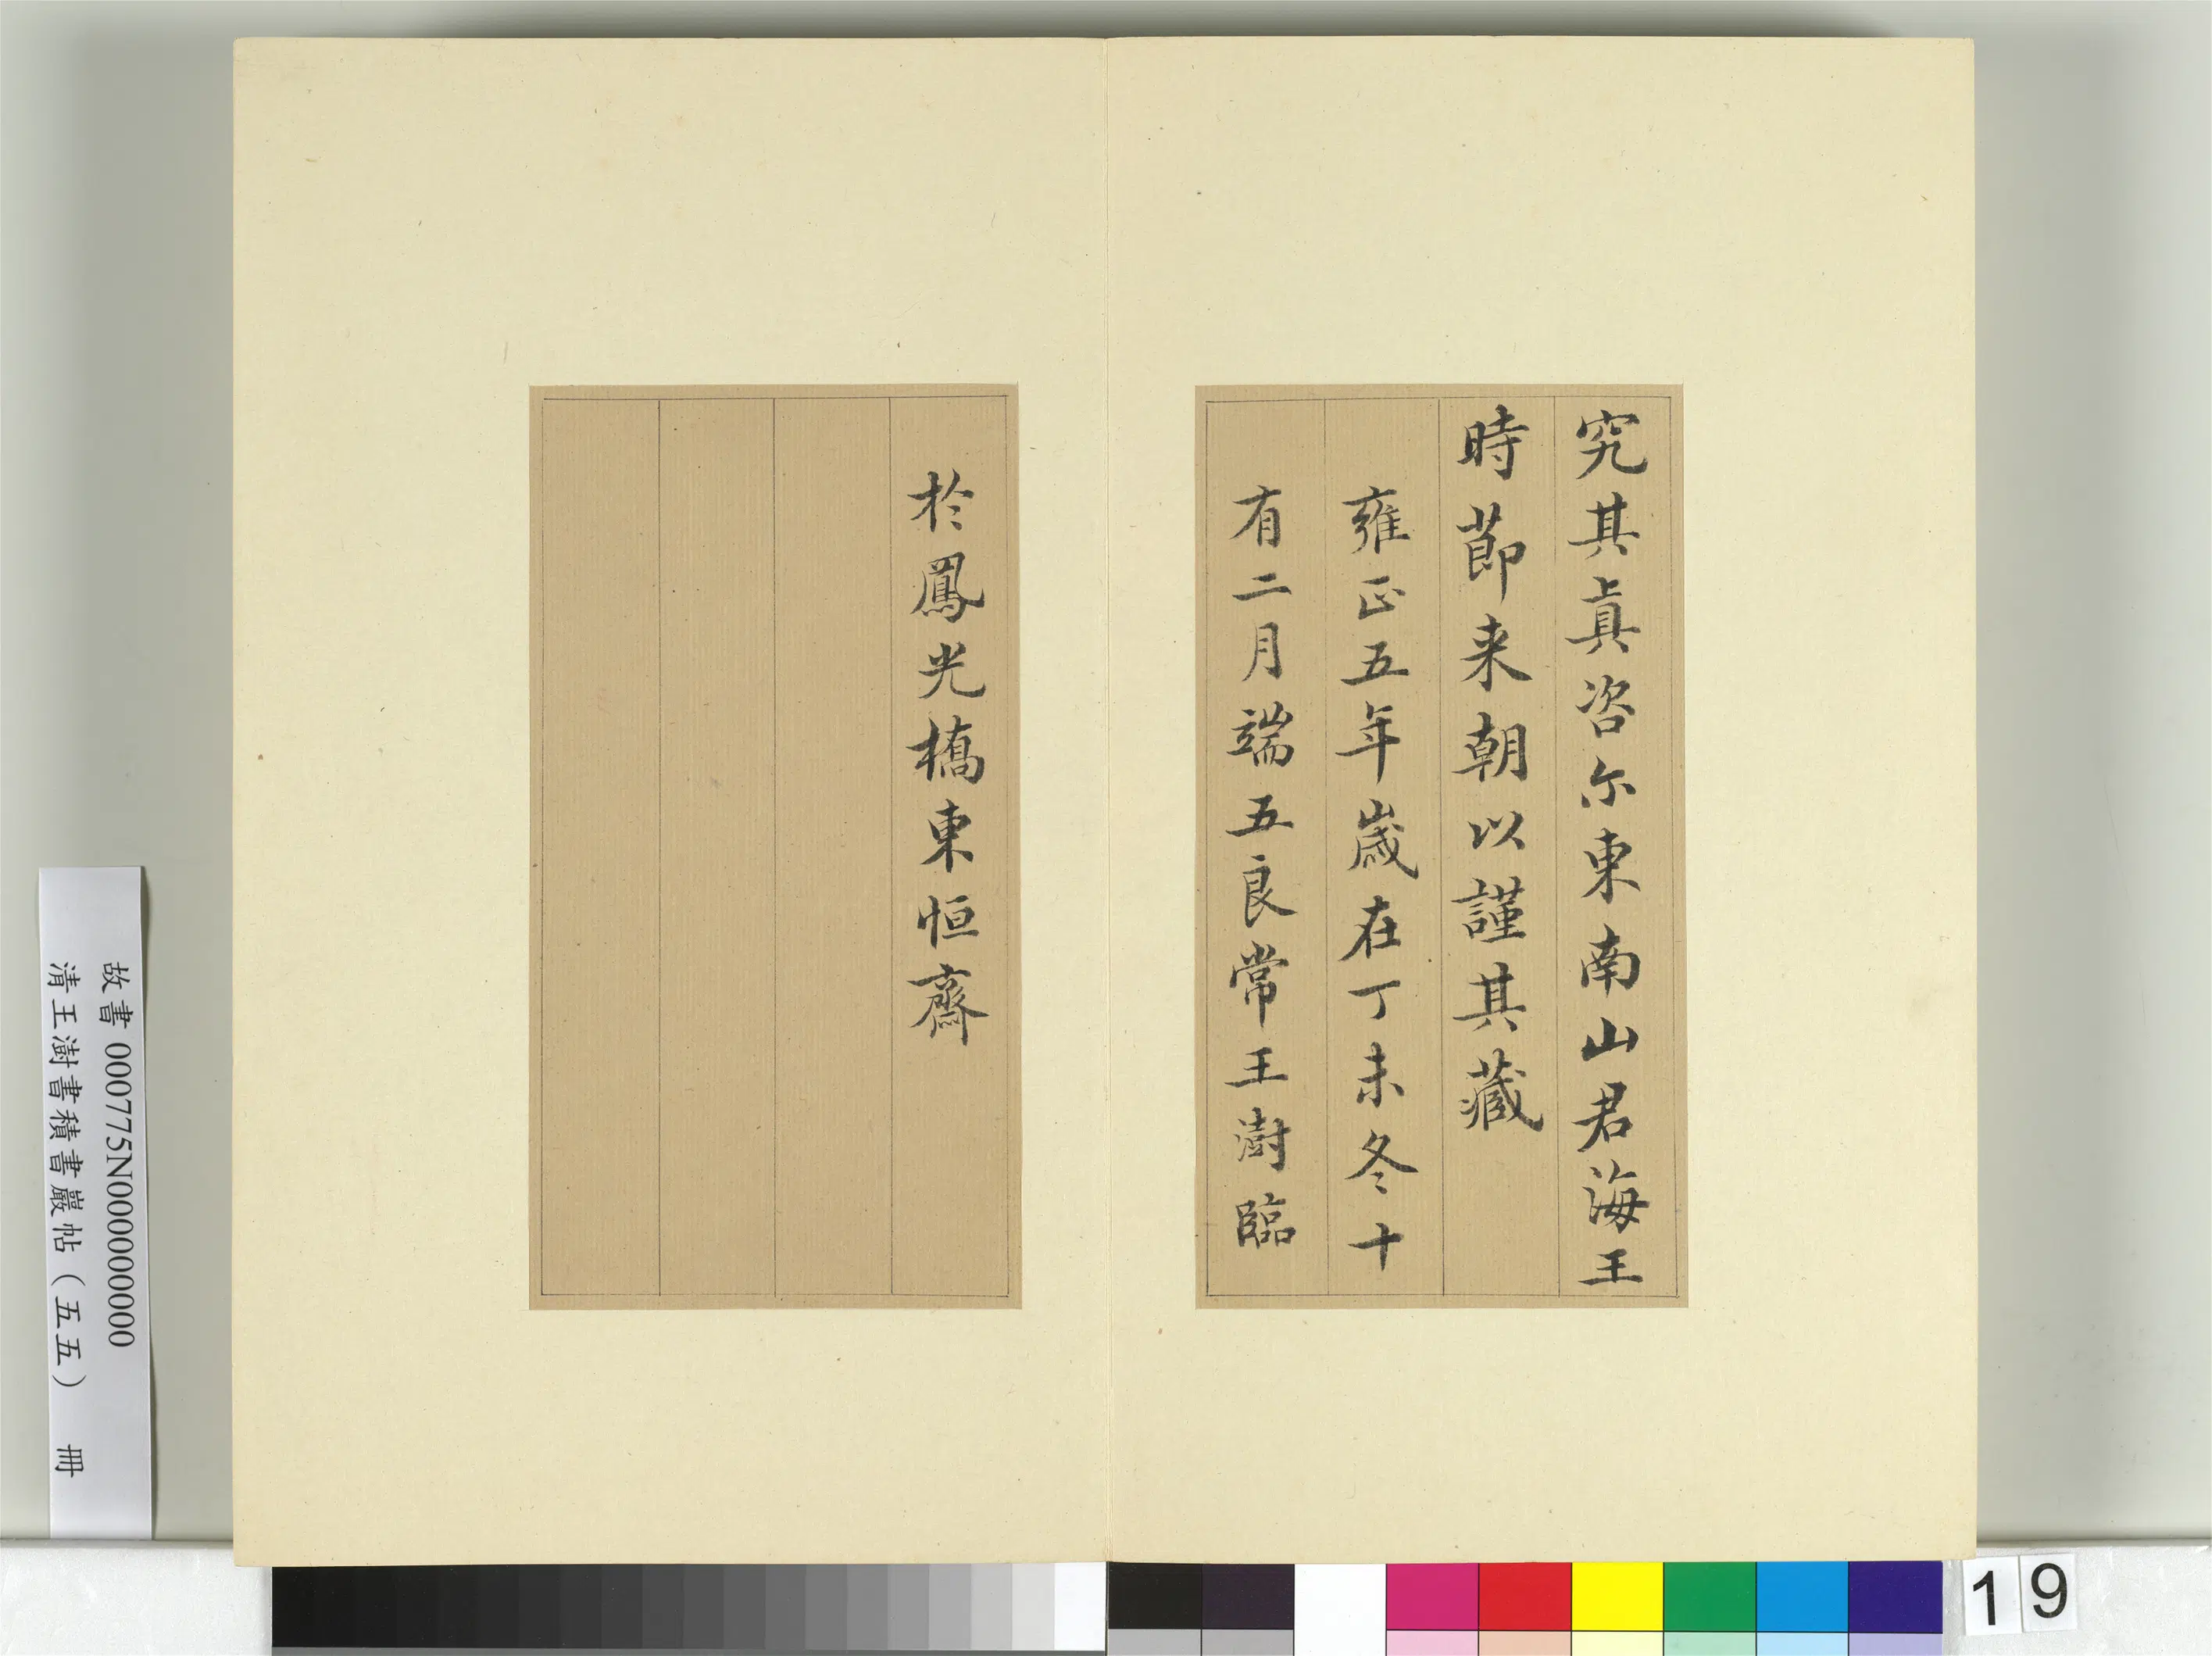 究其真咨尓東南山君海王
時莭来朝以謹其藏
雍正五年歲在丁未冬十
有二月端五良常王澍臨
於鳳光橋東恒齋
故書000775N000000000
清王澍書積書巖帖（五五） 冊
19